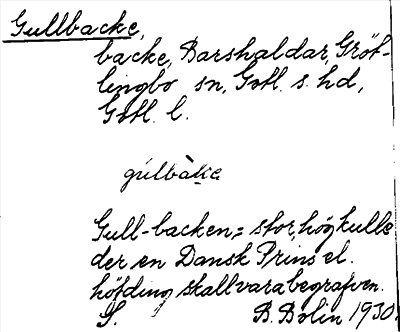 Gullbacke,
backe, Barshaldar, Gröt-
lingbo sn, Gotl. s. hd,
Gotl. l.
gúlbàke
Gull-backen, = stor, hög kulle
der en Dansk Prins el.
höfding skall vara begrafven.
S. B. Bolin 1930.